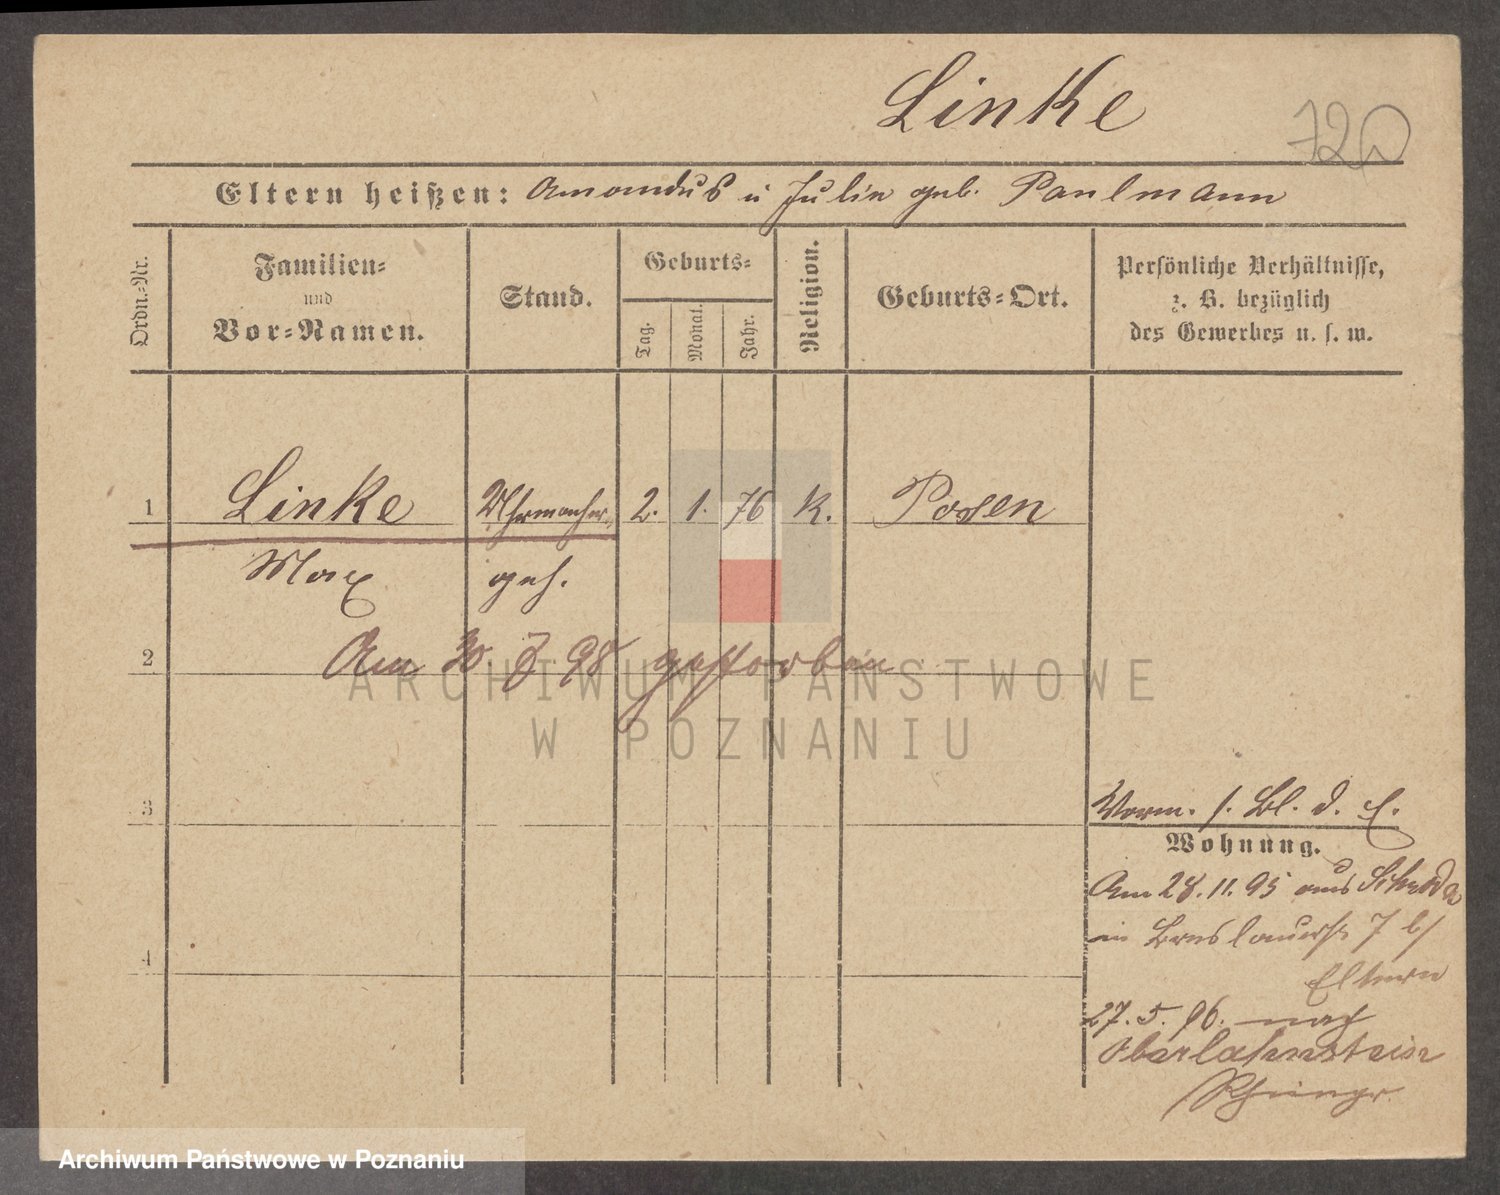 Linke
720
Eltern heißen: Amandus u Julie geb. Paulmann
Ordn.-Nr.
Familien-
und
Vor-Namen.
Stand.
Geburts-
Tag.
Monat.
Jahr.
Religion.
Geburts-Ort.
Persönliche Verhältnisse,
z. B. bezüglich
des Gewerbes u. s. w.
1 Linke Uhrmacher 2. 1. 76 k. Posen
Max geh.
2 Am 30 7 98 gestorben
3
Vorm. s. Bl. d. E.
Wohnung.
Am 28.11.95 aus Schroda
in Breslauerstr 7 b/
Eltern
4
27.5.96. nach
Oberlahnstein
ARCHIWUM PAŃSTWOWE
W POZNANIU
Archiwum Państwowe w Poznaniu